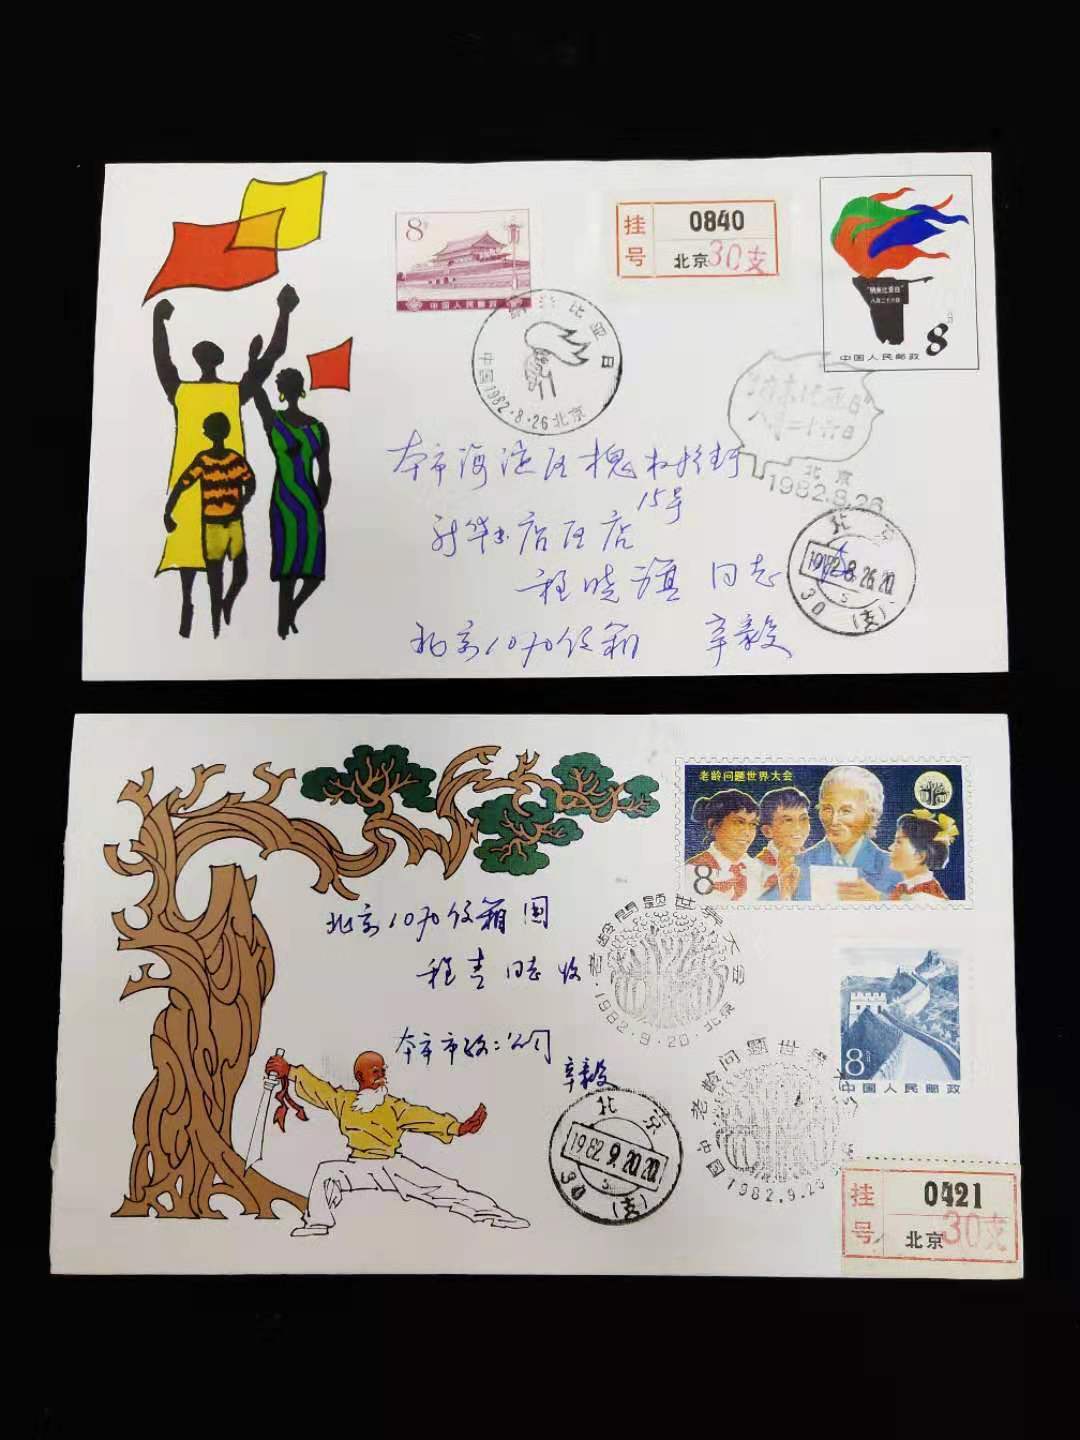 8分
中国人民邮政
挂号
0840
北京
30支
"纳米比亚日"
八月二十六日
8分
中国人民邮政
纳米比亚日
中国1982.8.26北京
纳米比亚日
八月二十六日
北京
1982.8.26
本市海淀区槐树街
15号
新华书店区店
程晓旗 同志
北京1070信箱 辛毅
北京
1982.8.26.20
30(支)
老龄问题世界大会
8分
北京1070信箱
程青同志收
本市市政二公司
辛毅
老龄问题世界大会
1982.9.20.北京
中国人民邮政
8分
老龄问题世界大
中国
1982.9.20
北京
1982.9.20.20
30(支)
挂号
0421
北京
30支